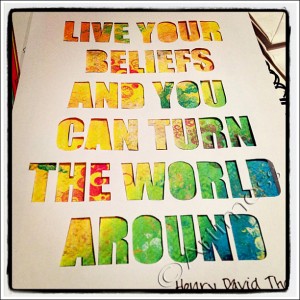 LIVE YOUR
BELIEFS
AND YOU
CAN TURN
THE WORLD
AROUND
Henry David Th